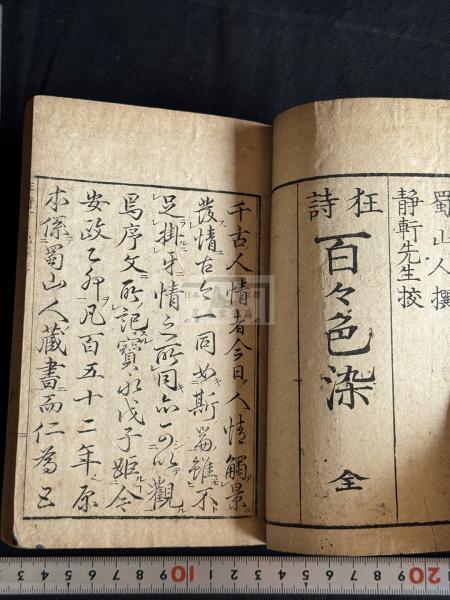 蜀山人撰
静軒先生挍
狂詩
百々色染
全
千古人情者今日人情觸景
發情古今一同如斯篇雖不
足掛牙情之所同亦可以觀
焉序文所記寶永戊子距今
安政乙卯凡百五十二年原
本係蜀山人藏書而仁為己
1 2 3 4 5 6 7 8 9 10 20